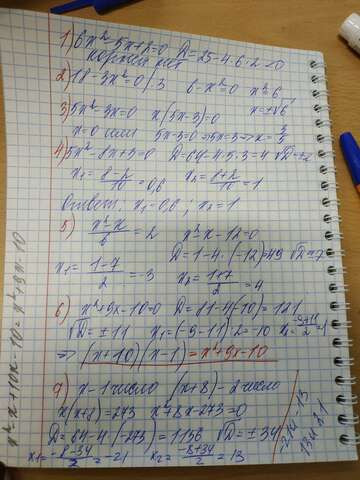 1) 6x²-5x+2=0 D=25-4·6·2<0
корней нет
2) 18-3x²=0 /3 6-x²=0 x²=6
x=±√6
3) 5x²-3x=0 x(5x-3)=0
x=0 или 5x-3=0 => 5x=3 => x=3/5
4) 5x²-8x+3=0 D=64-4·5·3=4 √D=±2
x₁=(8-2)/10=0,6 x₂=(8+2)/10=1
Ответ: x₁=0,6; x₂=1
5) (x²-x)/6=2 x²-x-12=0
D=1-4·(-12)=49 √D=±7
x₁=(1-7)/2=-3 x₂=(1+7)/2=4
6) x²+9x-10=0 D=81-4(-10)=121
√D=±11 x₁=(-9-11):2=-10 x₂=(-9+11)/2=1
=> (x+10)(x-1)=x²+9x-10
7) x-1 число (x+8)-2 число
x(x+8)=273 x²+8x-273=0
D=64-4·(-273)=1156 √D=±34
x₁=(-8-34)/2=-21 x₂=(-8+34)/2=13
x²-x+10x-10=x²+9x-10
-21 и -13
13 и 21